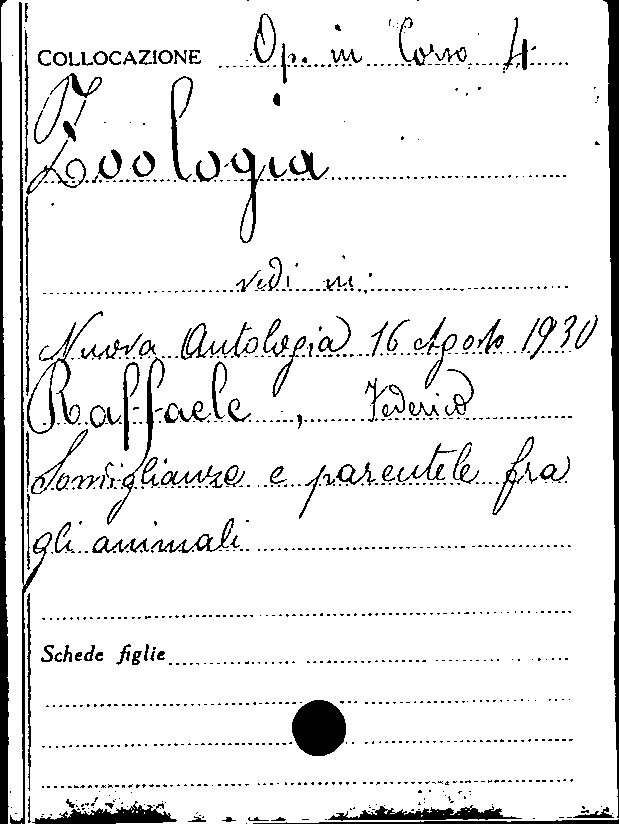 COLLOCAZIONE Op. in Corso 4
Zoologia
vedi in:
Nuova Antologia 16 Agosto 1930
Raffaele, Federico
Somiglianze e parentele fra
gli animali
Schede figlie